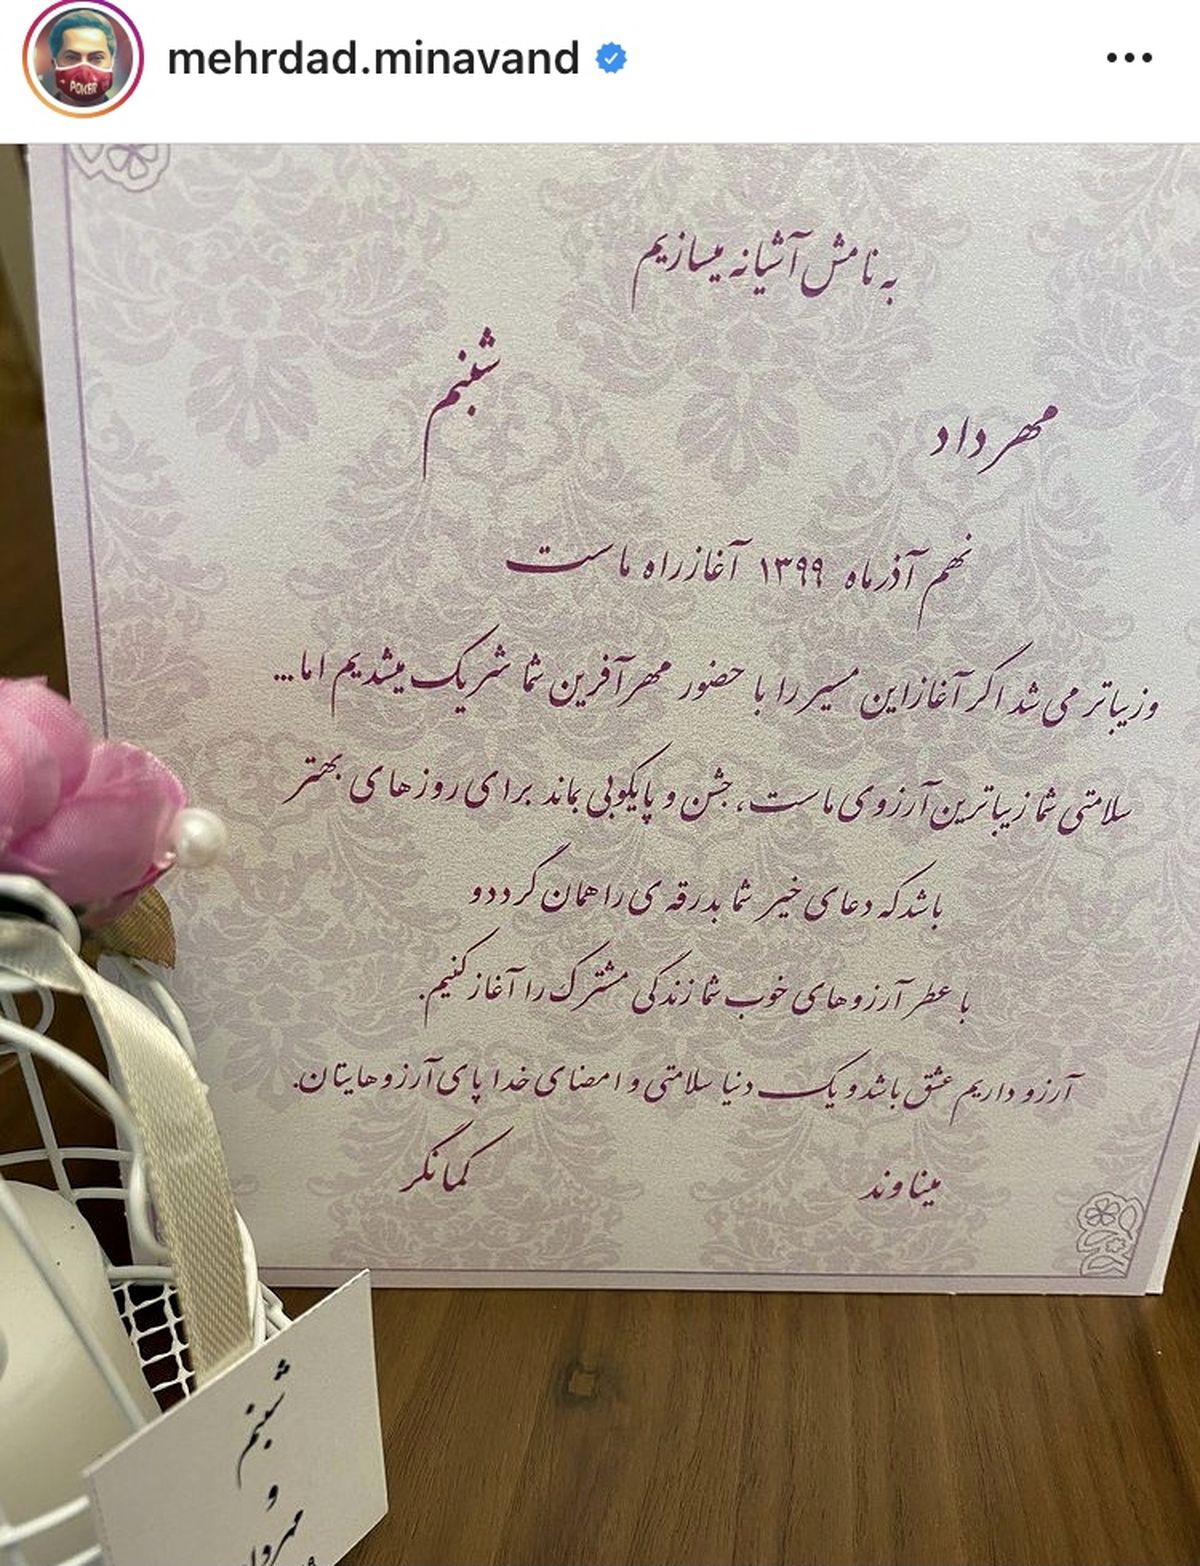 mehrdad.minavand
POKER
به نامش آشیانه میسازیم
شبنم
مهرداد
نهم آذرماه ۱۳۹۹ آغاز راه ماست
و زیباتر می شد اگر آغاز این مسیر را با حضور مهرآفرین شما شریک میشدیم اما...
سلامتی شما زیباترین آرزوی ماست، جشن و پایکوبی بماند برای روزهای بهتر
باشد که دعای خیر شما بدرقه ی راهمان گردد و
با عطر آرزوهای خوب شما زندگی مشترک را آغاز کنیم.
آرزو داریم عشق باشد و یک دنیا سلامتی و امضای خدا پای آرزوهایتان.
میناوند
کمانگر
شبنم
و
مهرداد